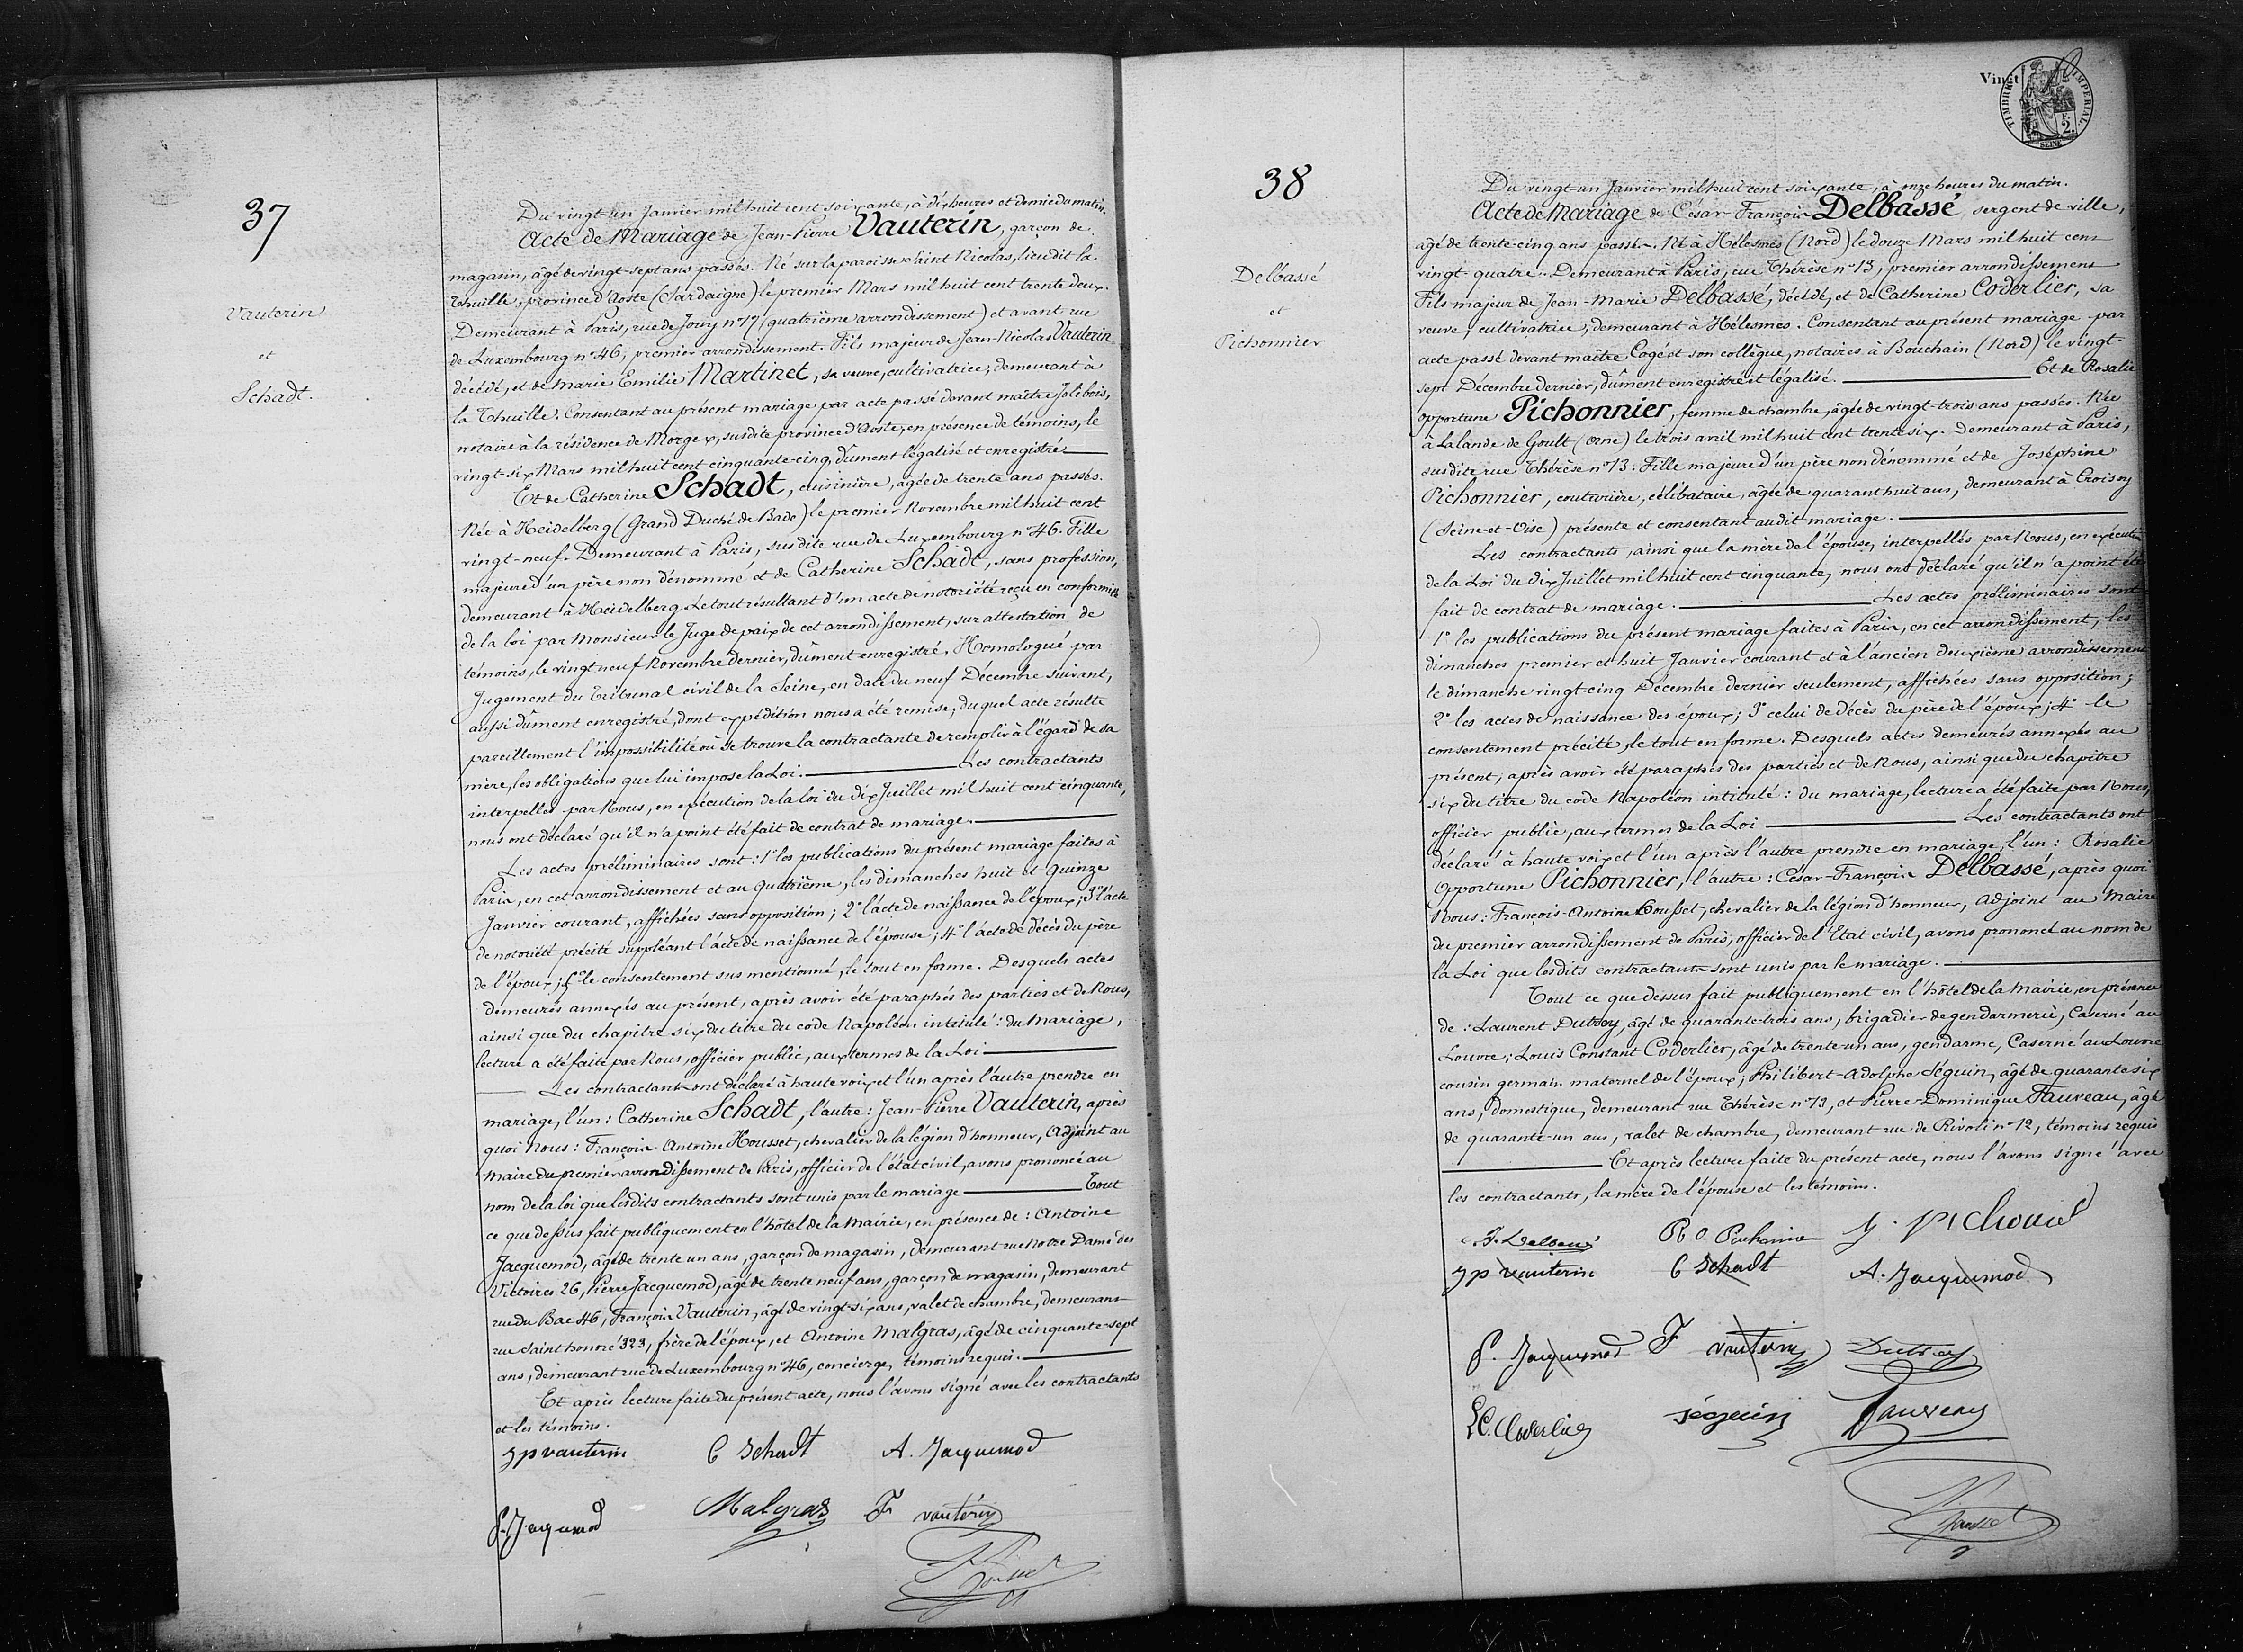 37
Vauterin
et
Schadt.
Du vingt-un Janvier mil huit cent soixante, à dix heures et demie du matin.
Acte de Mariage de Jean-Pierre Vauterin, garçon de
magasin, âgé de vingt-sept ans passés. Né sur la paroisse Saint Nicolas, lieu dit la
Thuille, province d'Aoste (Sardaigne) le premier Mars mil huit cent trente deux.
Demeurant à Paris, rue de Jouy n° 17 (quatrième arrondissement) et avant rue
de Luxembourg n° 46, premier arrondissement. Fils majeur de Jean-Nicolas Vauterin
décédé, et de Marie Emilie Martinet, sa veuve, cultivatrice, demeurant à
la Thuille. Consentant au présent mariage par acte passé devant maître Jolibois,
notaire à la résidence de Morgex, susdite province d'Aoste, en présence de témoins, le
vingt-six Mars mil huit cent cinquante-cinq, dûment légalisé et enregistré.
Et de Catherine Schadt, cuisinière, âgée de trente ans passés.
Née à Heidelberg (Grand Duché de Bade) le premier Novembre mil huit cent
vingt-neuf. Demeurant à Paris, susdite rue de Luxembourg n° 46. Fille
majeure d'un père non dénommé et de Catherine Schadt, sans profession,
demeurant à Heidelberg. Le tout résultant d'un acte de notoriété reçu en conformité
de la loi par Monsieur le Juge de paix de cet arrondissement, sur attestation de
témoins, le vingt neuf Novembre dernier, dûment enregistré. Homologué par
Jugement du Tribunal civil de la Seine, en date du neuf Décembre suivant,
aussi dûment enregistré, dont expédition nous a été remise, duquel acte résulte
pareillement l'impossibilité où se trouve la contractante de remplir à l'égard de sa
mère, les obligations que lui impose la Loi. Les contractants
interpellés par Nous, en exécution de la loi du dix Juillet mil huit cent cinquante,
nous ont déclaré qu'il n'a point été fait de contrat de mariage.
Les actes préliminaires sont : 1° les publications du présent mariage faites à
Paris, en cet arrondissement et au quatrième, les dimanches huit et quinze
Janvier courant, affichées sans opposition ; 2° l'acte de naissance de l'époux ; 3° l'acte
de notoriété précité suppléant l'acte de naissance de l'épouse ; 4° l'acte de décès du père
de l'époux ; 5° le consentement sus mentionné, le tout en forme. Desquels actes
demeurés annexés au présent, après avoir été paraphés des parties et de Nous,
ainsi que du chapitre six du titre du code Napoléon intitulé : du Mariage,
lecture a été faite par Nous, officier public, aux termes de la Loi
Les contractants ont déclaré à haute voix et l'un après l'autre prendre en
mariage, l'un : Catherine Schadt, l'autre : Jean-Pierre Vauterin, après
quoi Nous : François Antoine Housset, chevalier de la légion d'honneur, Adjoint au
Maire du premier arrondissement de Paris, officier de l'état civil, avons prononcé au
nom de la loi que lesdits contractants sont unis par le mariage Tout
ce que dessus fait publiquement en l'hôtel de la Mairie, en présence de : Antoine
Jacquemod, âgé de trente un ans, garçon de magasin, demeurant rue Notre Dame des
Victoires 26, Pierre Jacquemod, âgé de trente neuf ans, garçon de magasin, demeurant
rue du Bac 46, François Vauterin, âgé de vingt-six ans, valet de chambre, demeurant
rue Saint honoré 323, frère de l'époux, et Antoine Malgras, âgé de cinquante-sept
ans, demeurant rue de Luxembourg n° 46, concierge, témoins requis.
Et après lecture faite du présent acte, nous l'avons signé avec les contractants
et les témoins.
J p vauterin C Schadt A. Jacquemod
P. Jacquemod Malgras F vauterin
Housset
Vingt
TIMBRE IMPÉRIAL
2
SEINE
38
Delbassé
et
Pichonnier
Du vingt-un Janvier mil huit cent soixante, à onze heures du matin.
Acte de Mariage de César-François Delbassé, sergent de ville,
âgé de trente-cinq ans passés. Né à Hélesmes (Nord) le douze Mars mil huit cent
vingt-quatre. Demeurant à Paris, rue Thérèse n° 13, premier arrondissement
Fils majeur de Jean-Marie Delbassé, décédé, et de Catherine Coderlier, sa
veuve, cultivatrice, demeurant à Hélesmes. Consentant au présent mariage par
acte passé devant maître Cogé et son collègue, notaires à Bouchain (Nord) le vingt-
sept Décembre dernier, dûment enregistré et légalisé. Et de Rosalie
opportune Pichonnier, femme de chambre, âgée de vingt-trois ans passés. Née
à Lalande de Goult (Orne) le trois avril mil huit cent trente six. Demeurant à Paris,
susdite rue Thérèse n° 13. Fille majeure d'un père non dénommé et de Joséphine
Pichonnier, couturière, célibataire, âgée de quarant huit ans, demeurant à Croissy
(Seine-et-Oise) présente et consentant audit mariage.
Les contractants, ainsi que la mère de l'épouse, interpellés par Nous, en exécution
de la Loi du dix Juillet mil huit cent cinquante, nous ont déclaré qu'il n'a point été
fait de contrat de mariage. Les actes préliminaires sont
1° les publications du présent mariage faites à Paris, en cet arrondissement, les
dimanches premier et huit Janvier courant et à l'ancien deuxième arrondissement
le dimanche vingt-cinq Décembre dernier seulement, affichées sans opposition ;
2° les actes de naissance des époux ; 3° celui de décès du père de l'époux ; 4° le
consentement précité, le tout en forme. Desquels actes demeurés annexés au
présent, après avoir été paraphés des parties et de Nous, ainsi que du chapitre
six du titre du code Napoléon intitulé : du mariage, lecture a été faite par Nous,
officier public, aux termes de la Loi Les contractants ont
déclaré à haute voix et l'un après l'autre prendre en mariage, l'un : Rosalie
Opportune Pichonnier, l'autre : César-François Delbassé, après quoi
Nous : François-Antoine Housset, chevalier de la légion d'honneur, Adjoint au Maire
du premier arrondissement de Paris, officier de l'Etat civil, avons prononcé au nom de
la Loi que lesdits contractants sont unis par le mariage.
Tout ce que dessus fait publiquement en l'hôtel de la Mairie, en présence
de : Laurent Dutrey, âgé de quarante-trois ans, brigadier de gendarmerie, Caserné au
Louvre ; Louis Constant Coderlier, âgé de trente un ans, gendarme, Caserné au Louvre
cousin germain maternel de l'époux ; Philibert-Adolphe Séguin, âgé de quarante six
ans, domestique, demeurant rue Thérèse n° 13, et Pierre-Dominique Fauveau, âgé
de quarante-un ans, valet de chambre, demeurant rue de Rivoli n° 12, témoins requis
Et après lecture faite du présent acte, nous l'avons signé avec
les contractants, la mère de l'épouse et les témoins.
J p vauterin C Schadt A. Jacquemod
P. Jacquemod F vauterin Dutrey
LC. Coderlier séguin Fauveau
Housset